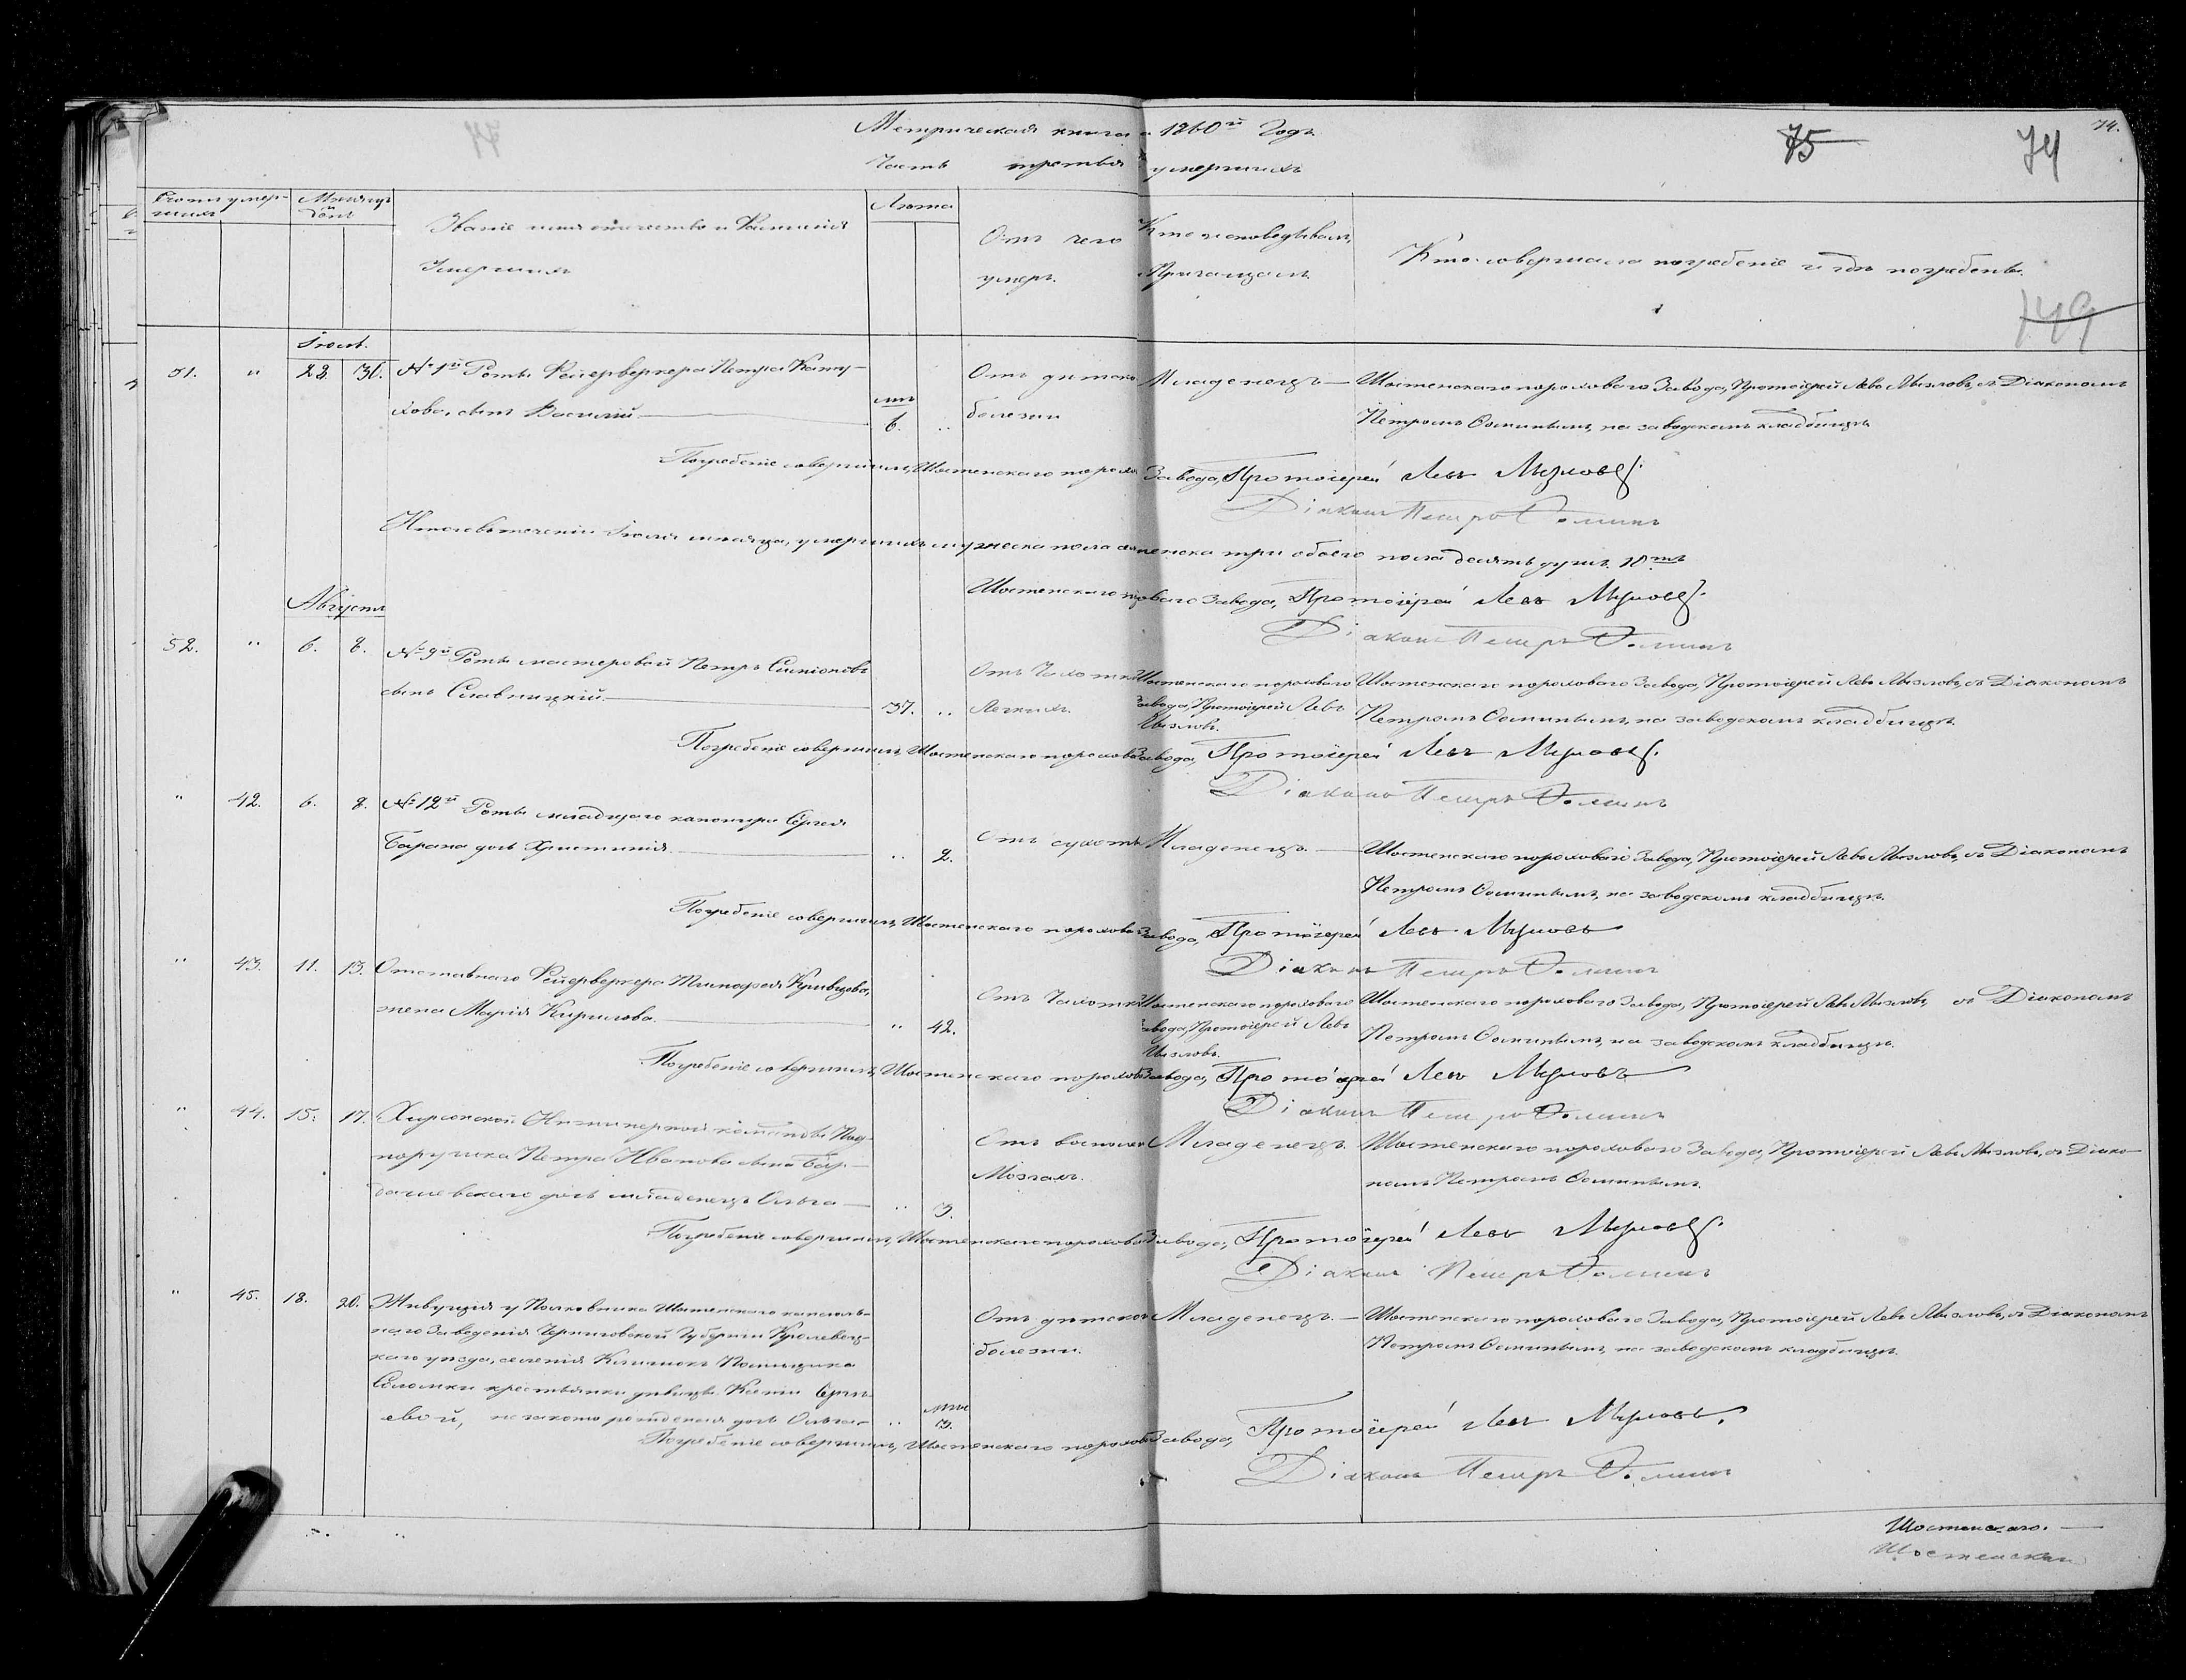 Метрическая книга 1860й Годъ
Часть третья умершихъ
75
74
74.
Счотъ умер-
шихъ
Мѣсяцъ
и
Дѣнь
Званіе имя отечество и Фамилія
Умершихъ
Лѣта
Отъ чего
умеръ.
Кто исповедывалъ,
и Пріобщалъ.
Кто совершалъ погребеніе и гдѣ погребены.
149
Іюль.
51. " 28. 30. № 1й Роты Фейерверкера Петра
сынъ Василій
6. "
Отъ дѣтской
болезни
Младенецъ — Шостенскаго пороховаго Завода, Протоіерей Левъ Мызловъ, съ Діакономъ
Петромъ Фоминымъ, на заводскомъ кладбищѣ
Погребеніе совершилъ, Шостенскаго порохов Завода, Протоіерей Левъ Мызловъ.
Діаконъ Петръ Фоминъ
Итого въ теченіи Іюля мѣсяца, умершихъ мужеска пола женска три обоего пола десять душъ. 10ть
Шостенскаго пороваго Завода, Протоіерей Левъ Мызловъ.
Діаконъ Петръ Фоминъ
Августъ
52. " 6. 8. № 9й Роты мастеровой Петръ Симіоновъ
сынъ Славицкій
37. "
Отъ Чахотки
Легкихъ.
Шостенскаго пороховаго
Завода, Протоіерей Левъ
Мызловъ.
Шостенскаго пороховаго Завода, Протоіерей Левъ Мызловъ, съ Діакономъ
Петромъ Фоминымъ, на заводскомъ кладбищѣ.
Погребеніе совершилъ, Шостенскаго порохов Завода, Протоіерей Левъ Мызловъ.
Діаконъ Петръ Фоминъ
" 42. 6. 8. № 12й Роты младшаго канонира Сергея
Барана дочь Христинія.
" 2.
Отъ сухотъ
Младенецъ. — Шостенскаго пороховаго Завода, Протоіерей Левъ Мызловъ, съ Діакономъ
Петромъ Фоминымъ, на заводскомъ кладбищѣ.
Погребеніе совершилъ, Шостенскаго порохов Завода, Протоіерей Левъ Мызловъ
Діаконъ Петръ Фоминъ
" 43. 11. 13. Отставнаго Фейерверкера Тимофея Кривцова,
жена Марія Кирилова.
" 42.
Отъ Чахотки
Шостенскаго пороховаго
Завода, Протоіерей Левъ
Мызловъ.
Шостенскаго пороховаго Завода, Протоіерей Левъ Мызловъ, съ Діакономъ
Петромъ Фоминымъ, на заводскомъ кладбищѣ.
Погребеніе совершилъ, Шостенскаго порохов Завода, Протоіерей Левъ Мызловъ
Діаконъ Петръ Фоминъ
" 44. 15. 17. Херсонской Инжинерной команды Под-
порутчика Петра Иванова сына Бар-
дачевскаго дочь младенецъ Ольга —
" 3.
Отъ воспален
Мозгахъ.
Младенецъ. Шостенскаго пороховаго Завода, Протоіерей Левъ Мызловъ, съ Діако-
номъ Петромъ Фоминымъ.
Погребеніе совершилъ, Шостенскаго порохов Завода, Протоіерей Левъ Мызловъ.
Діаконъ Петръ Фоминъ
" 45. 18. 20. Живущая у Полковника Шостенскаго капсюль-
наго Заведенія Черниговской Губерніи Кролевец-
каго уѣзда, селенія Клишокъ Помѣщика
Соломки крестьянки дѣвицы Ксеніи
незаконо рожденая дочь Ольга —
" 3.
Отъ дѣтской
болезни.
Младенецъ. — Шостенскаго пороховаго Завода, Протоіерей Левъ Мызловъ, съ Діакономъ
Петромъ Фоминымъ, на заводскомъ кладбищѣ.
Погребеніе совершилъ, Шостенскаго порохов Завода, Протоіерей Левъ Мызловъ.
Діаконъ Петръ Фоминъ
Шостенскаго. —
Шостенскаго